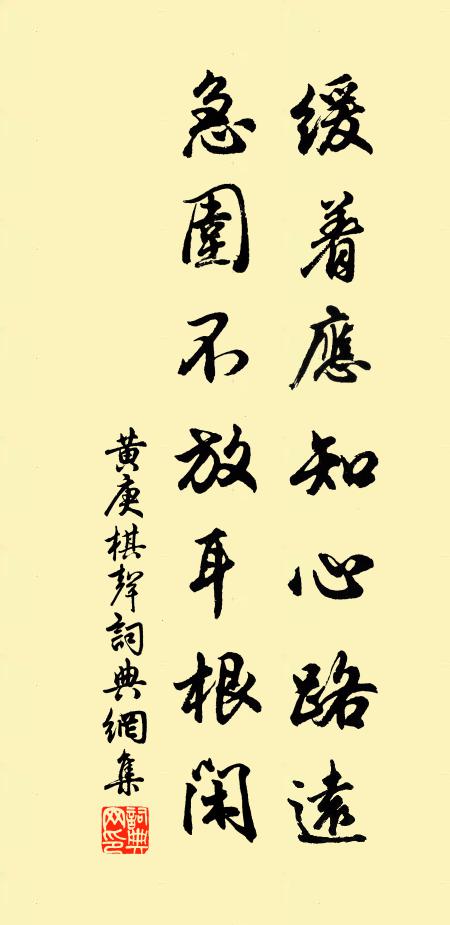 緩着應知心路遠
急圍不放耳根閑
黄庚棋聲詞典網集
詞典網印